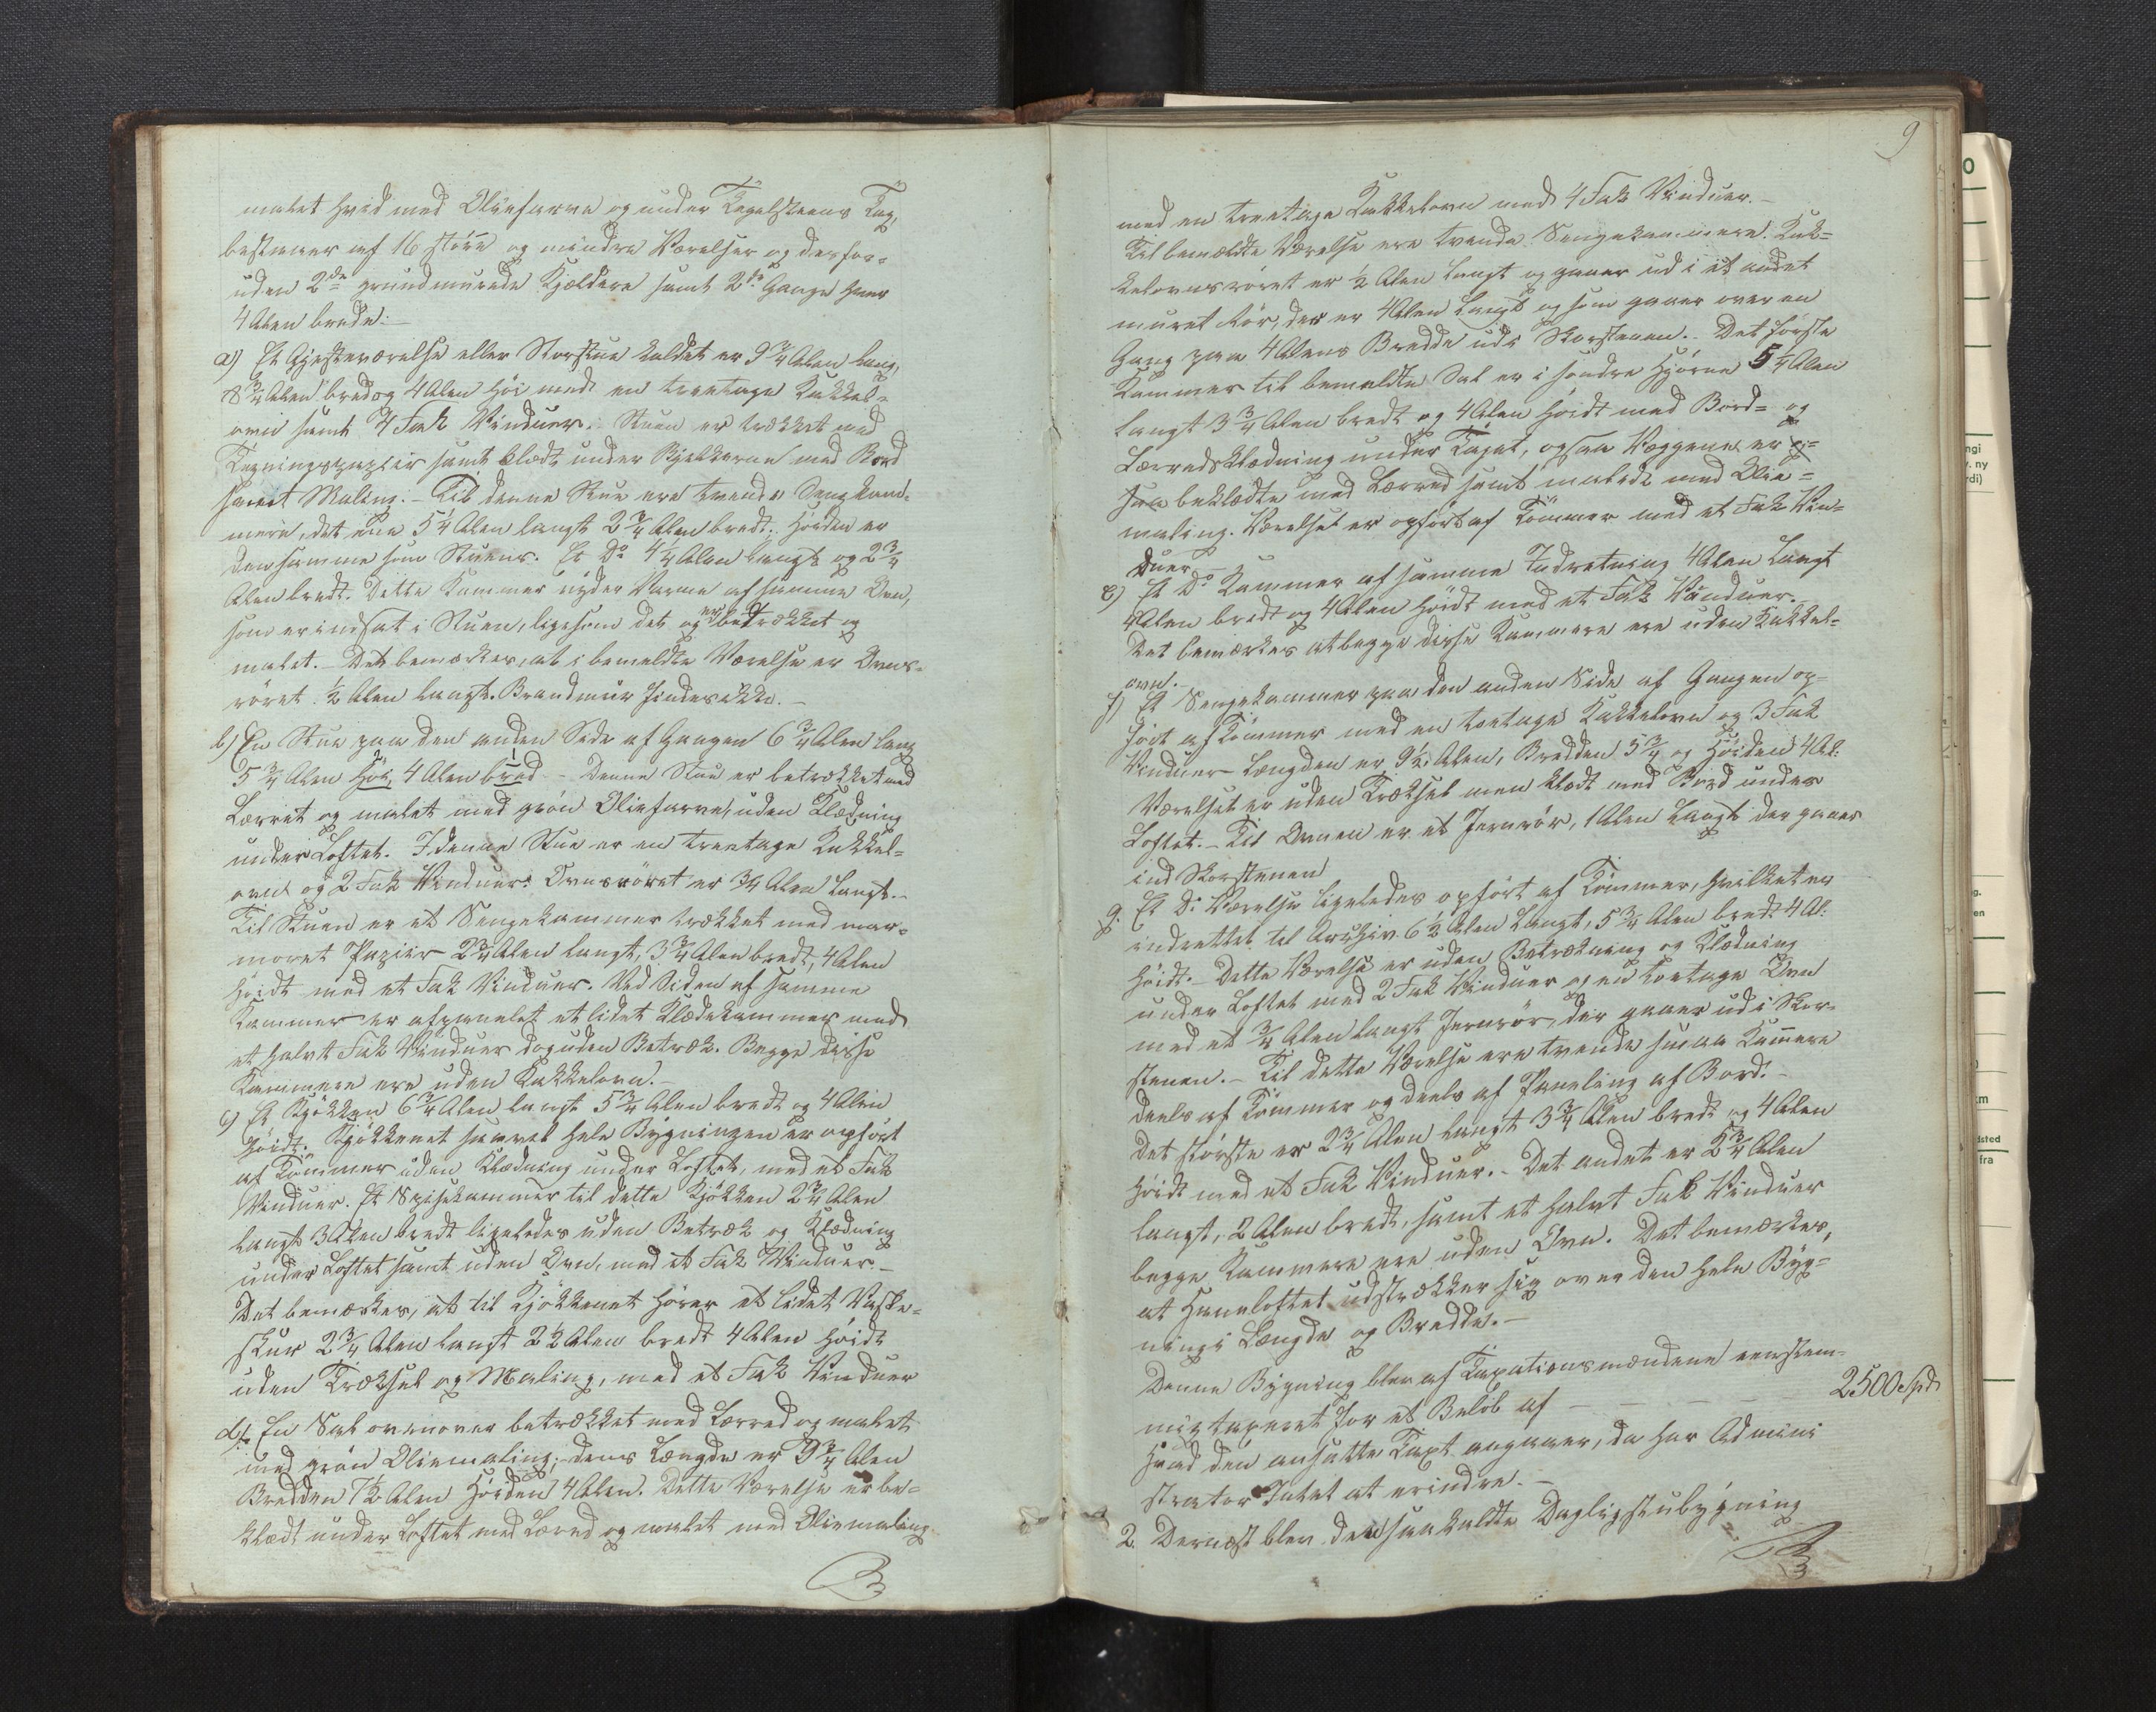 malet hvid med Oliefarve og under Tegelsteens Tag,
bestaaer af 16 större og mindre Værelser og desfor-
uden 2de grundmurede Kjældere samt 2de Gange hver
4 Alen brede:-
a) Et Gjesteværelse eller Storstue kaldet er 9 3/4 Alen lang,
8 3/4 Alen bred og 4 Alen höi med en treetages Kakkel-
ovn samt 4 Fak Vinduer. Stuen er trækket med
Tegningspapiir samt klædt under Bjelkerne med Bord
samt Maling.- Til denne Stue ere tvende Sengekam-
mere, det ene 5 1/4 Alen langt 2 3/4 Alen bredt; Höiden er
den samme som Stuens. Et Do 4 1/4 Alen langt og 2 3/4
Alen bredt. Dette Kammer nyder Varme af samme Ovn,
som er indsat i Stuen, ligesom det og er betrækket og
malet.- Det bemærkes, at i bemeldte Værelse er Ovns-
röret 1/2 Alen langt. Brandmuur findes ikke.-
b) En Stue paa den anden Side af Gangen 6 3/4 Alen lang
5 3/4 Alen höi, 4 Alen bred - Denne Stue er betrækket med
Lærret og malet med grön Oliefarve, uden Klædning
under Loftet. I denne Stue er en treetages Kakkel-
ovn og 2 Fak Vinduer. Ovnsröret er 3/4 Alen langt.-
Til Stuen er et Sengekammer trækket med mar-
moret Papiir 2 3/4 Alen langt, 3 3/4 Alen bredt, 4 Alen
höidt med et Fak Vinduer. Ved Siden af samme
Kammer er afpanelet et lidet Klædekammer med
et halvt Fak Vinduer dog uden Betræk. Begge disse
Kammere ere uden Kakkelovn.-
c) Et Kjökken 6 3/4 Alen langt 5 3/4 Alen bredt og 4 Alen
höidt. Kjökkenet saavel hele Bygningen er opfört
af Tömmer uden Klædning under Loftet, med et Fak
Vinduer. Et Spisekammer til dette Kjökken 2 3/4 Alen
langt 3 Alen bredt ligeledes uden Betræk og Klædning
under Loftet samt uden Ovn, med et Fak Vinduer.-
Det bemærkes, at til Kjökkenet hörer et lidet Vaske-
skuur 2 3/4 Alen langt 2 1/2 Alen bredt 4 Alen höidt
uden Træksel og Maling, med et Fak Vinduer
d) En Sal ovenover betrækket med Lærred og malet
med grön Oliemaling; dens Længde er 9 3/4 Alen
Bredden 7 1/2 Alen Höiden 4 Alen. Dette Værelse er be-
klædt under Loftet med Lærred og malet med Oliemaling
9
med en treetages Kakkelovn med 4 Fak Vinduer.-
Til bemeldte Værelse ere tvende Sengekammere. Kak-
kelovnsröret er 1/2 Alen langt og gaaer ud i et andet
muret Rör, der er 4 Alen langt og som gaaer over en
Gang paa 4 Alens Bredde ud i Skorstenen.- Det förste
Kammer til bemeldte Sal er i söndre Hjörne 5 1/4 Alen
langt 3 3/4 Alen bredt og 4 Alen höidt med Bord- og
Lærredsklædning under Taget, ogsaa Væggene er
beklædte med Lærred samt malede med Olie-
maling. Værelset er opfört af Tömmer med et Fak Vin-
duer.-
e) Et Do Kammer af samme Indretning 4 Alen langt
4 Alen bredt og 4 Alen höidt med et Fak Vinduer.-
Det bemærkes at begge disse Kammere ere uden Kakkel-
ovn.
f) Et Sengekammer paa den anden Side af Gangen op-
fört af Tömmer med en toetages Kakkelovn og 3 Fak
Vinduer. Længden er 9 1/2 Alen, Bredden 5 3/4 og Höiden 4 Al:
Værelset er uden Træksel men klædt med Bord under
Loftet.- Til Ovnen er et Jernrör, 1 Alen langt der gaaer
ind Skorstenen
g. Et Do Værelse ligeledes opfört af Tömmer, hvilket er
indrettet til Archiv. 6 1/2 Alen langt, 5 3/4 Alen bredt 4 Al:
höidt.- Dette Værelse er uden Betrækning og Klædning
under Loftet med 2 Fak Vinduer og en toetages Ovn
med et 3/4 Alen langt Jernrör, der gaaer ud i Skor-
stenen.- Til dette Værelse ere tvende smaa Kamere
deels af Tömmer og deels af Paneling af Bord.-
Det störste er 2 3/4 Alen langt 3 3/4 Alen bredt og 4 Alen
höidt med et Fak Vinduer.- Det andet er 2 3/4 Alen
langt, 2 Alen bredt, samt et halvt Fak Vinduer
begge Kammere ere uden Ovn. Det bemærkes,
at Haneloftet udstrækker sig over den hele Byg-
nings Længde og Bredde.-
Denne Bygning blev af Taxationsmændene eenstem-
mig taxeret for et Belöb af - - - - 2500 Spd
Hvad den ansatte Taxt angaaer, da har Admini
strator Intet at erindre.-
2. Dernæst blev den saakaldte Dagligstubygning